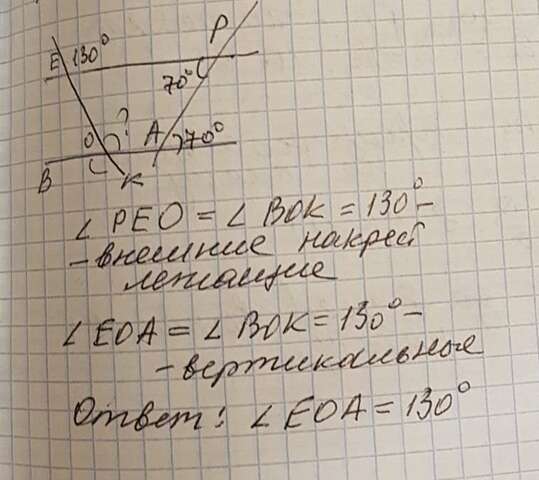 P
E 130°
70°
O ? A 70°
B K
∠ PEO = ∠ BOK = 130° -
- внешние накрест
лежащие
∠ EOA = ∠ BOK = 130° -
- вертикальные
Ответ: ∠ EOA = 130°